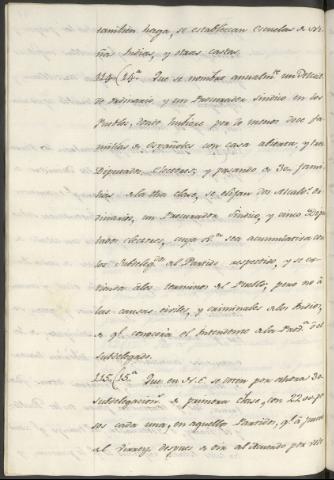 tambien haga, se establezcan escuelas de Ni-
ñas Indias, y otras castas.
114 (14.ª Que se nombre anualm.te un Alcalde
Ordinario, y un Procurador Sindico en los
Pueblos, donde hubiere por lo menos doce fa-
milias de Españoles con casa abierta, y tres
Diputados Electores; y pasando de 30. fami-
lias de la dha clase, se elijan dos Alcald.s Or-
dinarios, un Procurador Sindico, y cinco Dipu-
tados electores, cuya jur.n sea acumulativa con
los Subdeleg.dos del Partido respectivo, y se ex-
tienda a los terminos del Pueblo; pero no á
las causas civiles, y criminales de los Indios,
de q.e conocerá el Intendente de la Prov.a ó el
subdelegado.
115 (15.ª Que en N. E. se doten por ahora 30
subdelegacion.s de primera clase, con 22
sos cada una, en aquellos Partidos, q.e á juicio
del Virrey, despues de oir al Acuerdo por voto